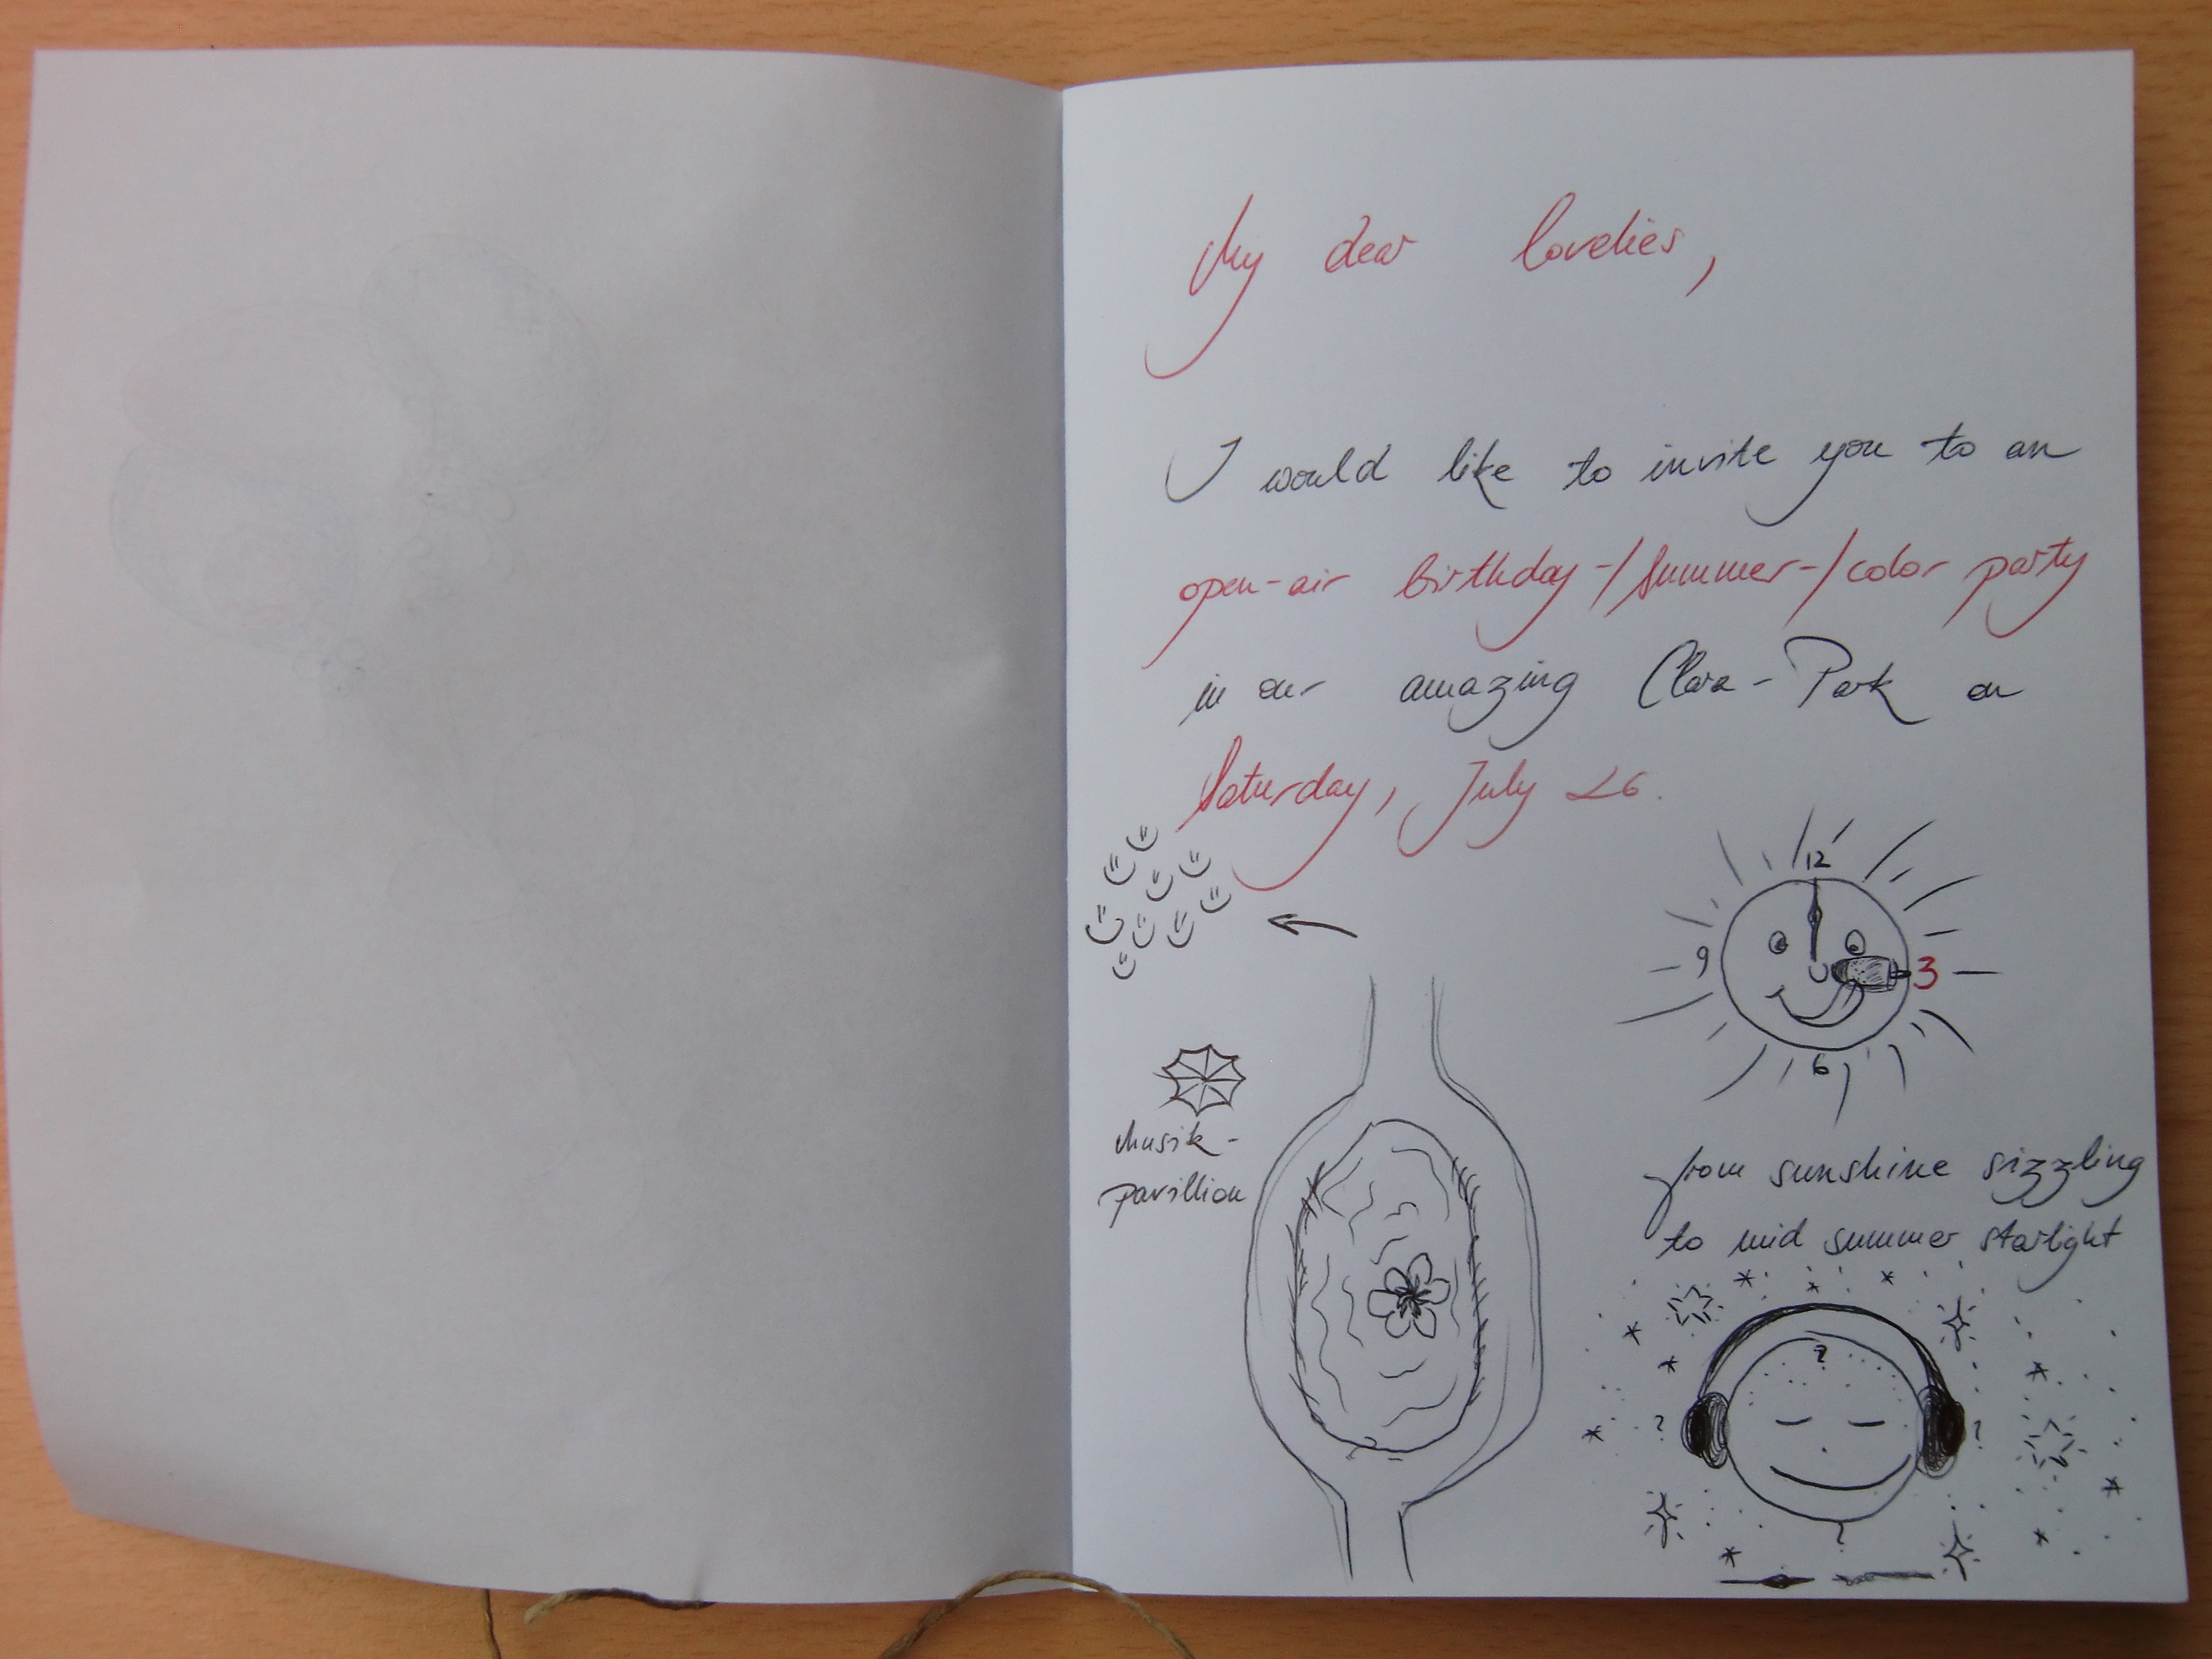 My dear lovelies,
I would like to invite you to an
open-air birthday-/summer-/color party
in our amazing Clara-Park on
Saturday, July 26.
12
9
3
6
Musik-
pavillion
from sunshine sizzling
to mid summer starlight
?
? ?
?